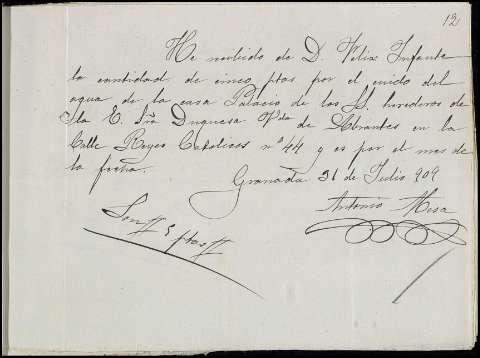 12
He recibido de D. Felix Infante
la cantidad de cinco ptas por el cuido del
agua de la casa Palacio de los SS. herederos de
la E. Sra Duquesa Vda de Abrantes en la
Calle Reyes Catolicos nº 44 y es por el mes de
la fecha.
Granada 31 de Julio 909
Antonio Mesa
Son # 5 ptas #